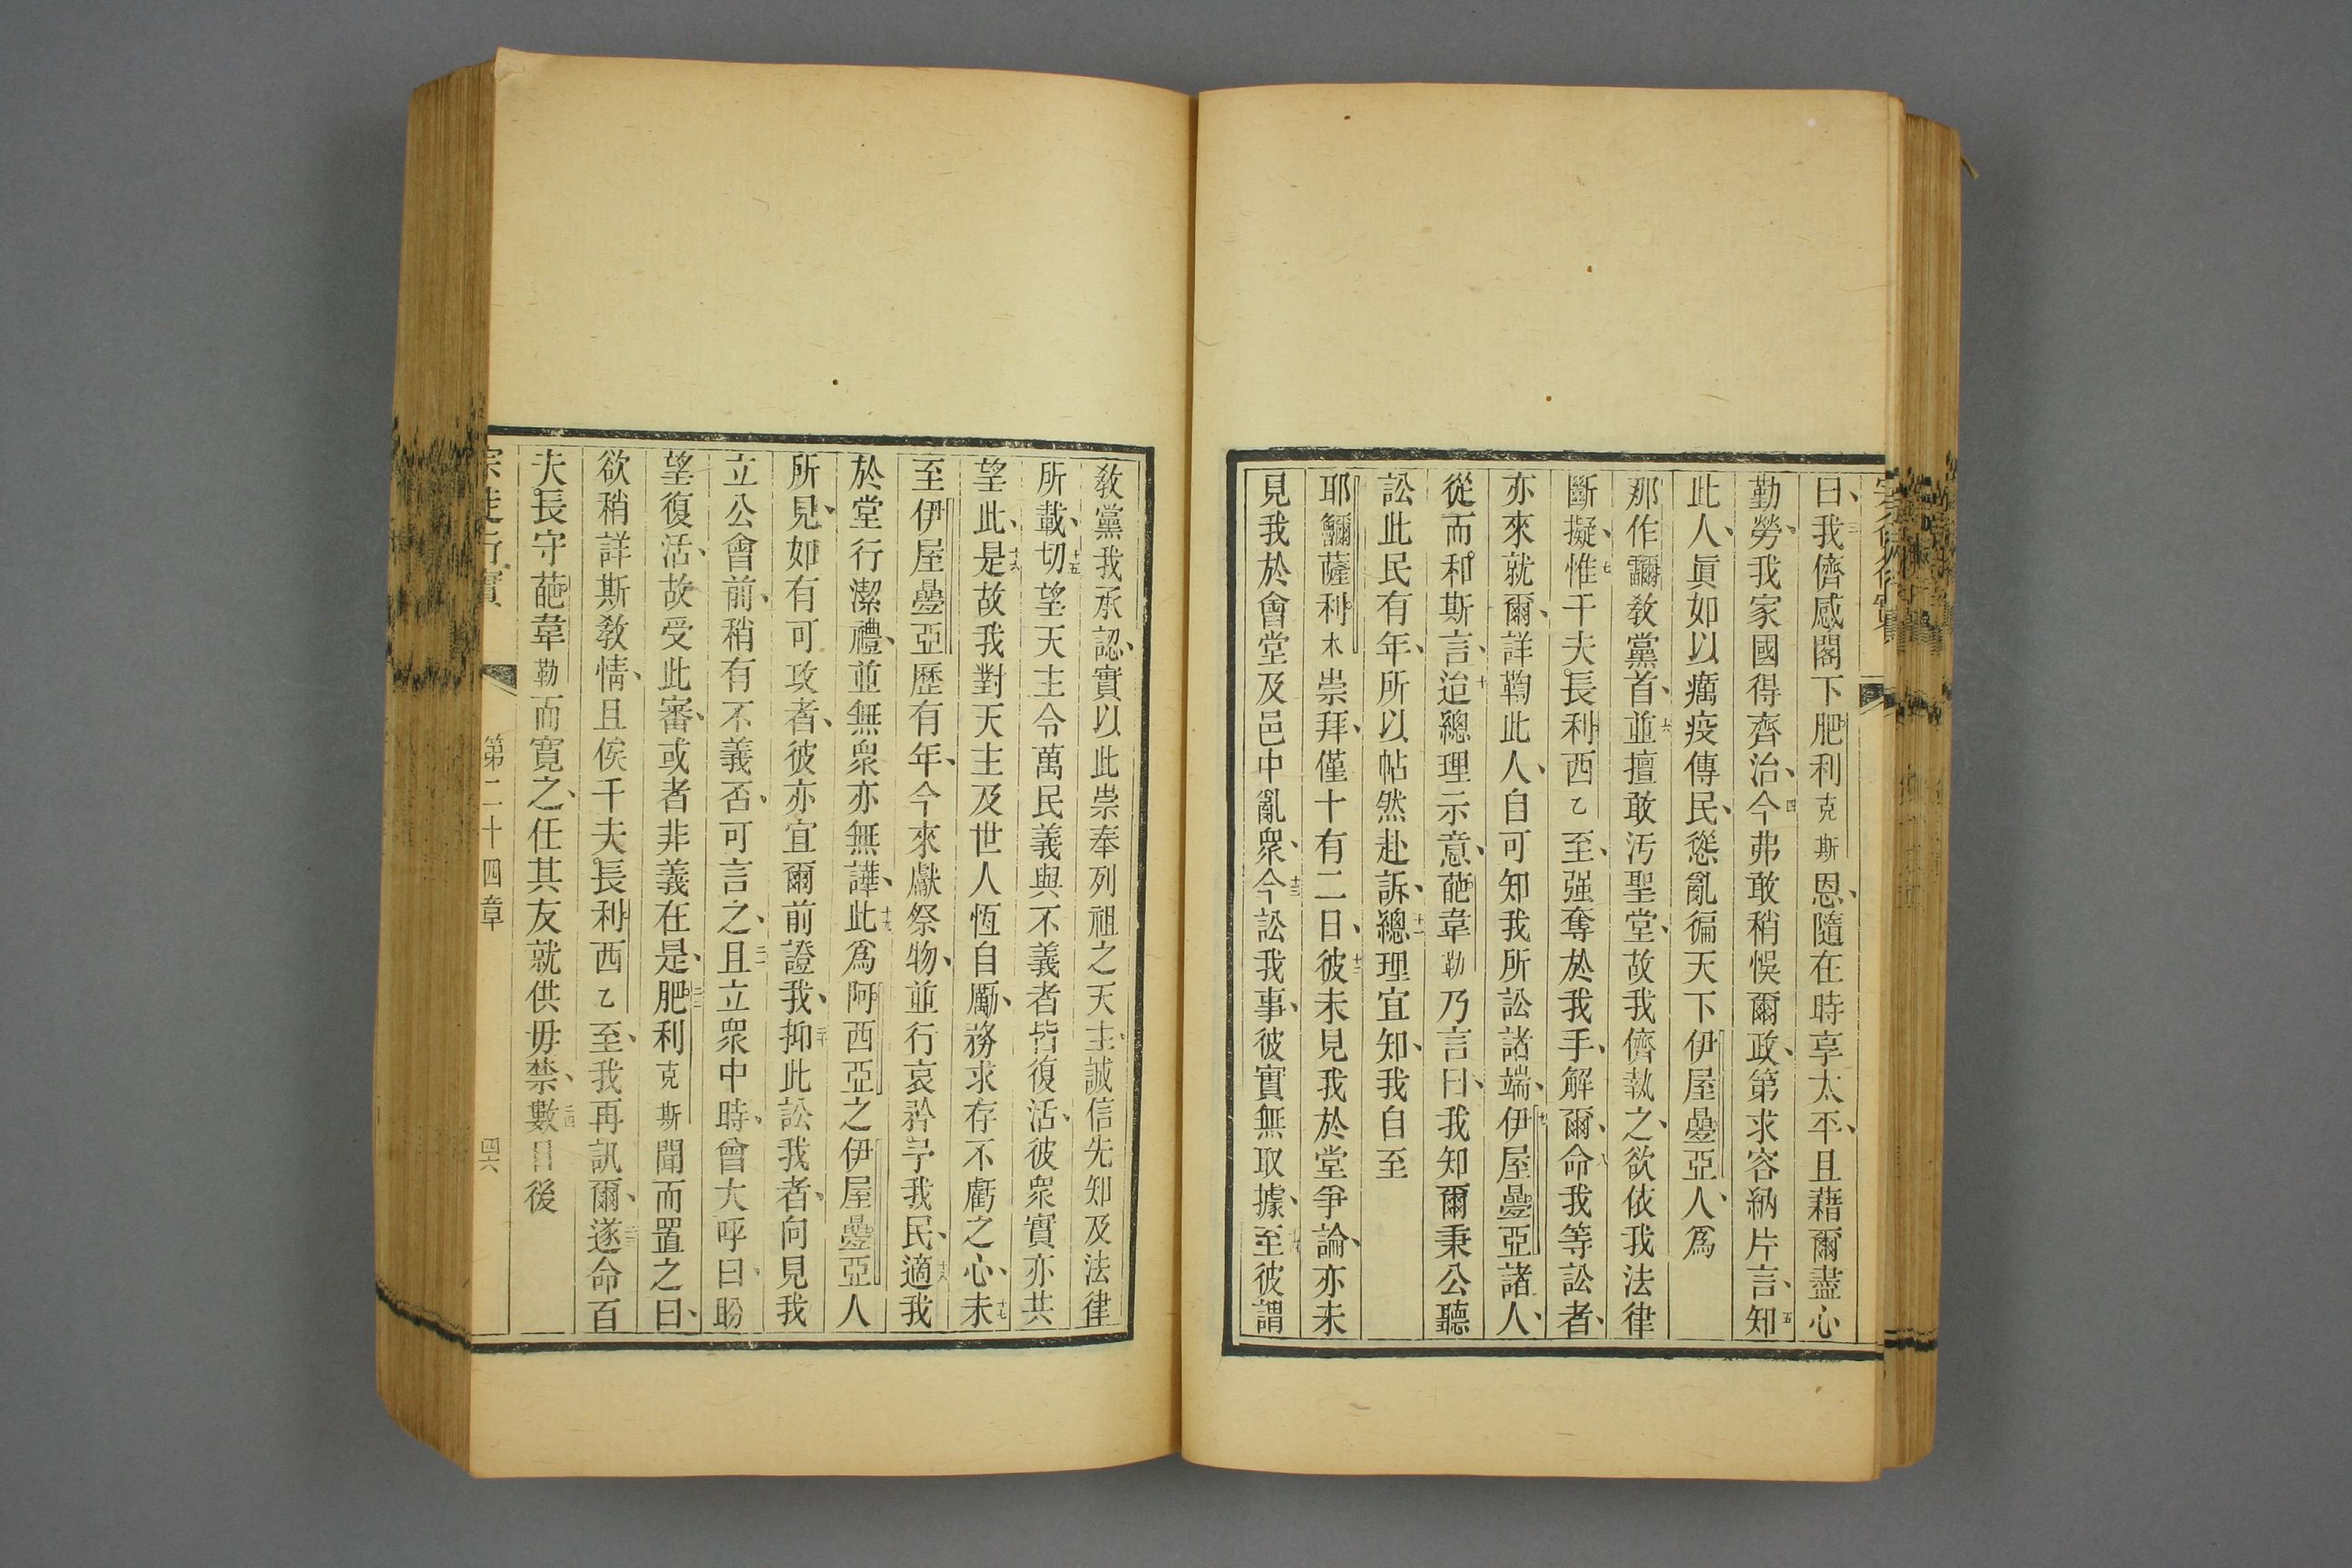 曰、三我儕感閣下肥利克斯恩、隨在時享太平、且藉爾盡心
勤勞、我家國得齊治、四今弗敢稍悞爾政、第求容納片言、五知
此人、眞如以癘疫傳民、慫亂徧天下伊屋疊亞人、爲
那作彌教黨首、六並擅敢汚聖堂、故我儕執之、欲依我法律
斷擬、七惟千夫長利西乙至、强奪於我手、解爾、八命我等訟者、
亦來就爾、詳鞫此人、自可知我所訟諸端、九伊屋疊亞諸人、
從而和斯言、十迨總理示意、葩韋勒乃言曰、我知爾秉公聽
訟此民有年、所以帖然赴訴、十一總理宜知、我自至
耶薩利木崇拜、僅十有二日、十二彼未見我於堂爭論、亦未
見我於會堂及邑中亂衆、十三今訟我事、彼實無取據、十四至彼謂
教黨我承認、實以此崇奉列祖之天主、誠信先知及法律
所載、十五切望天主令萬民義與不義者皆復活、彼衆實亦共
望此、十六是故我對天主及世人恆自勵、務求存不虧之心、十七未
至伊屋疊亞歷有年、今來獻祭物、並行哀矜予我民、十八適我
於堂行潔禮、並無衆亦無譁、十九此爲阿西亞之伊屋疊亞人
所見、如有可攻者、彼亦宜爾前證我、二十抑此訟我者、向見我
立公會前、稍有不義否、可言之、二一且立衆中時、曾大呼曰、盼
望復活、故受此審、或者非義在是、二二肥利克斯聞而置之曰、
欲稍詳斯教情、且俟千夫長利西乙至、我再訊爾、二三遂命百
夫長守葩韋勒而寬之、任其友就供毋禁、二四數日後
宗徒行實 第二十四章 四六